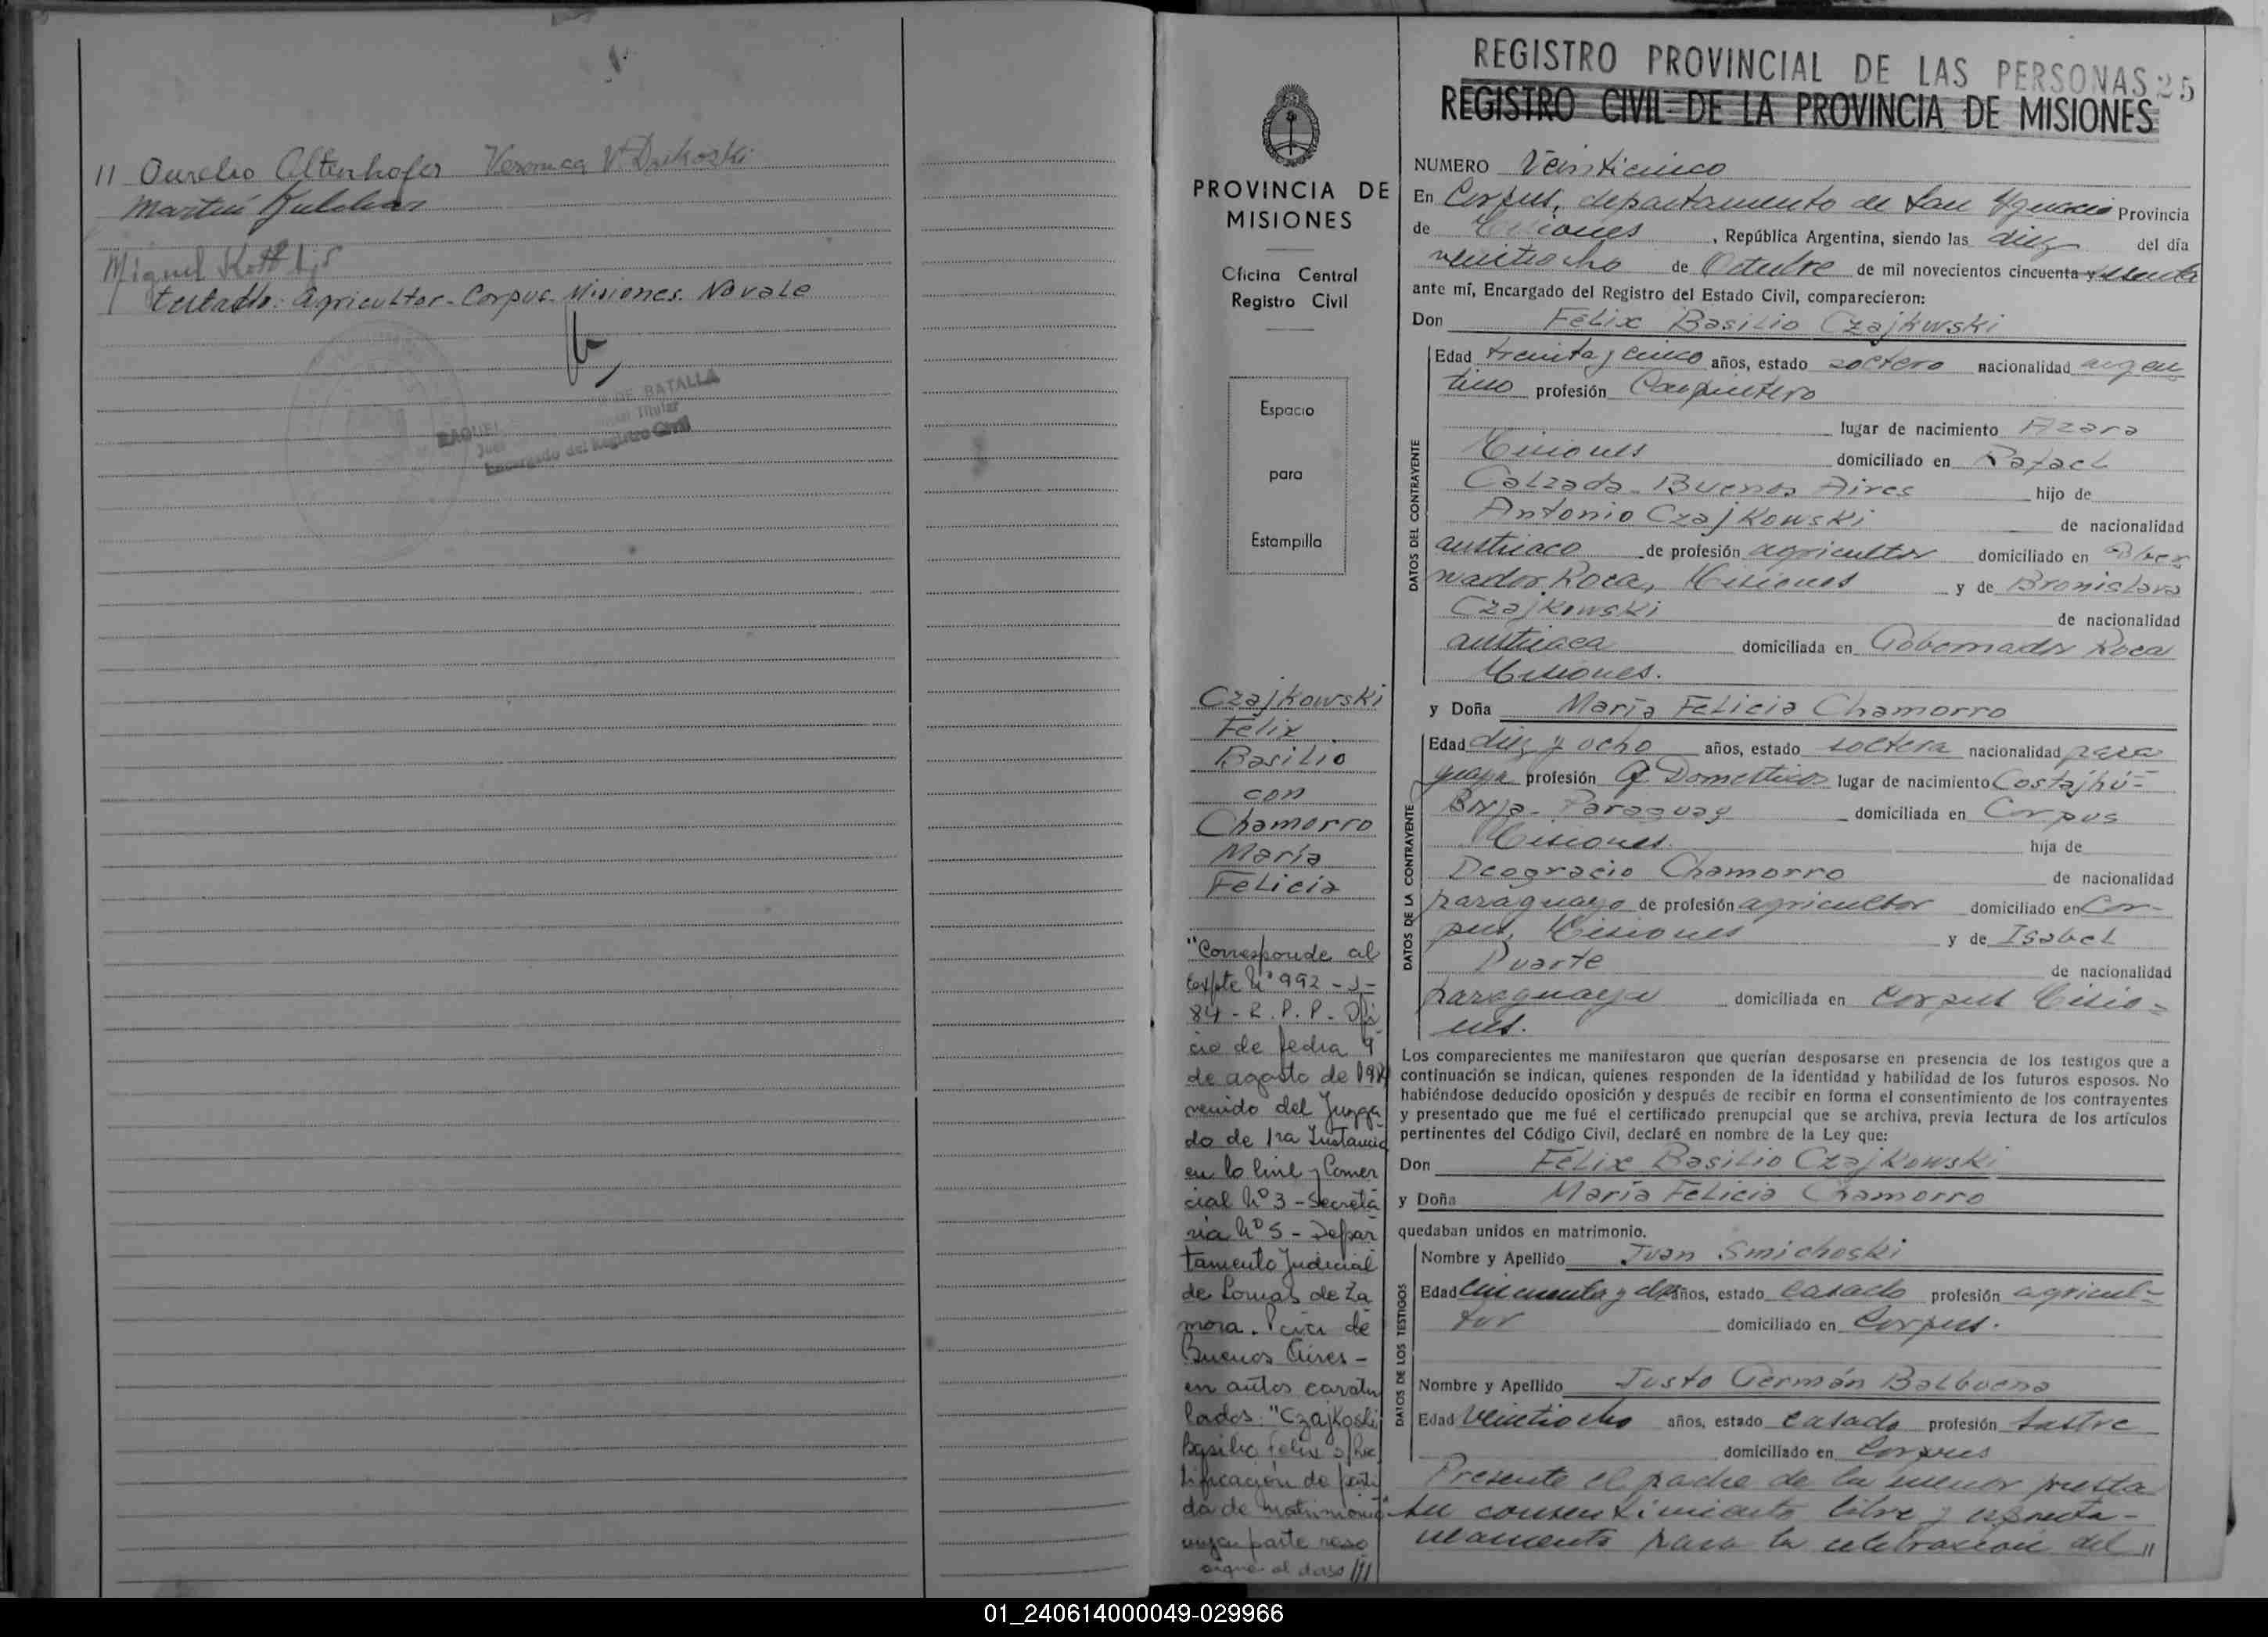 11 Aurelio Altenhofer Veronica V. Darkoski
Martin
Miguel Kott
testado: Agricultor - Corpus - Misiones. No vale
DE BATALLA
RAQUEL
Titular
Juez
Encargado del Registro Civil
PROVINCIA DE
MISIONES
Oficina Central
Registro Civil
Espacio
para
Estampilla
Czajkowski
Félix
Basilio
con
Chamorro
María
Felicia
"Corresponde al
Expte Nº 992 - J -
84 - R.P.P. - Ofi
cio de fecha 9
de agosto de 1984
venido del Juzga
do de 1ra Instancia
en lo Civil y Comer
cial Nº 3 - Secreta
ría Nº 5 - Depar
tamento Judicial
de Lomas de Za
mora. Pcia de
Buenos Aires -
en autos caratu
lados: "Czajkoski
Basilio Felix s/Rec
tificación de parti
da de matrimonio"
cuya parte reso
sigue al dorso ///
REGISTRO PROVINCIAL DE LAS PERSONAS 25
REGISTRO CIVIL DE LA PROVINCIA DE MISIONES
NUMERO Veinticinco
En Corpus, departamento de San Ignacio Provincia
de Misiones, República Argentina, siendo las diez del día
veintiocho de Octubre de mil novecientos cincuenta y sesenta
ante mí, Encargado del Registro del Estado Civil, comparecieron:
Don Félix Basilio Czajkwski
DATOS DEL CONTRAYENTE
Edad treinta y cinco años, estado soltero nacionalidad argen
tino profesión Carpintero
lugar de nacimiento Azara
Misiones domiciliado en Rafael
Calzada - Buenos Aires hijo de
Antonio Czajkowski de nacionalidad
austriaco de profesión agricultor domiciliado en Gober
nador Roca, Misiones y de Bronislava
Czajkowski de nacionalidad
austriaca domiciliada en Gobernador Roca
Misiones.
y Doña María Felicia Chamorro
DATOS DE LA CONTRAYENTE
Edad diez y ocho años, estado soltera nacionalidad para
guaya profesión Q. Domesticos lugar de nacimiento Costajhú-
Bxja - Paraguay domiciliada en Corpus
Misiones. hija de
Deogracio Chamorro de nacionalidad
paraguayo de profesión agricultor domiciliado en Cor-
pus, Misiones y de Isabel
Duarte de nacionalidad
paraguaya domiciliada en Corpus Misio=
nes.
Los comparecientes me manifestaron que querían desposarse en presencia de los testigos que a
continuación se indican, quienes responden de la identidad y habilidad de los futuros esposos. No
habiéndose deducido oposición y después de recibir en forma el consentimiento de los contrayentes
y presentado que me fué el certificado prenupcial que se archiva, previa lectura de los artículos
pertinentes del Código Civil, declaré en nombre de la Ley que:
Don Félix Basilio Czajkowski
y Doña María Felicia Chamorro
quedaban unidos en matrimonio.
DATOS DE LOS TESTIGOS
Nombre y Apellido Juan Smichoski
Edad cincuenta y dos años, estado casado profesión agricul-
tor domiciliado en Corpus.
Nombre y Apellido Justo Germán Balbuena
Edad veintiocho años, estado casado profesión sastre
domiciliado en Corpus
Presente el padre de la menor presta
su consentimiento libre y esponta-
neamente para la celebración del 11
01_240614000049-029966